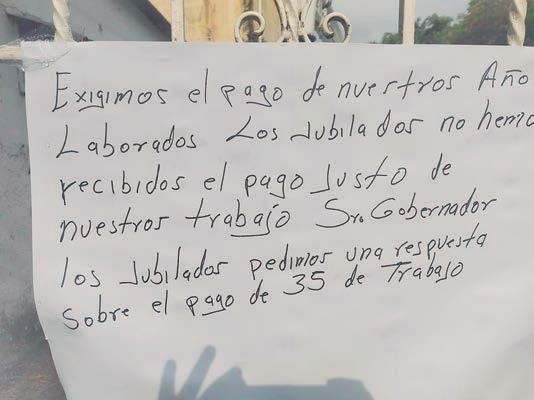 Exigimos el pago de nuestros Año
Laborados Los Jubilados no hemo
recibidos el pago Justo de
nuestros trabajo Sr. Gobernador
los Jubilados pedimos una respuesta
sobre el pago de 35 de Trabajo